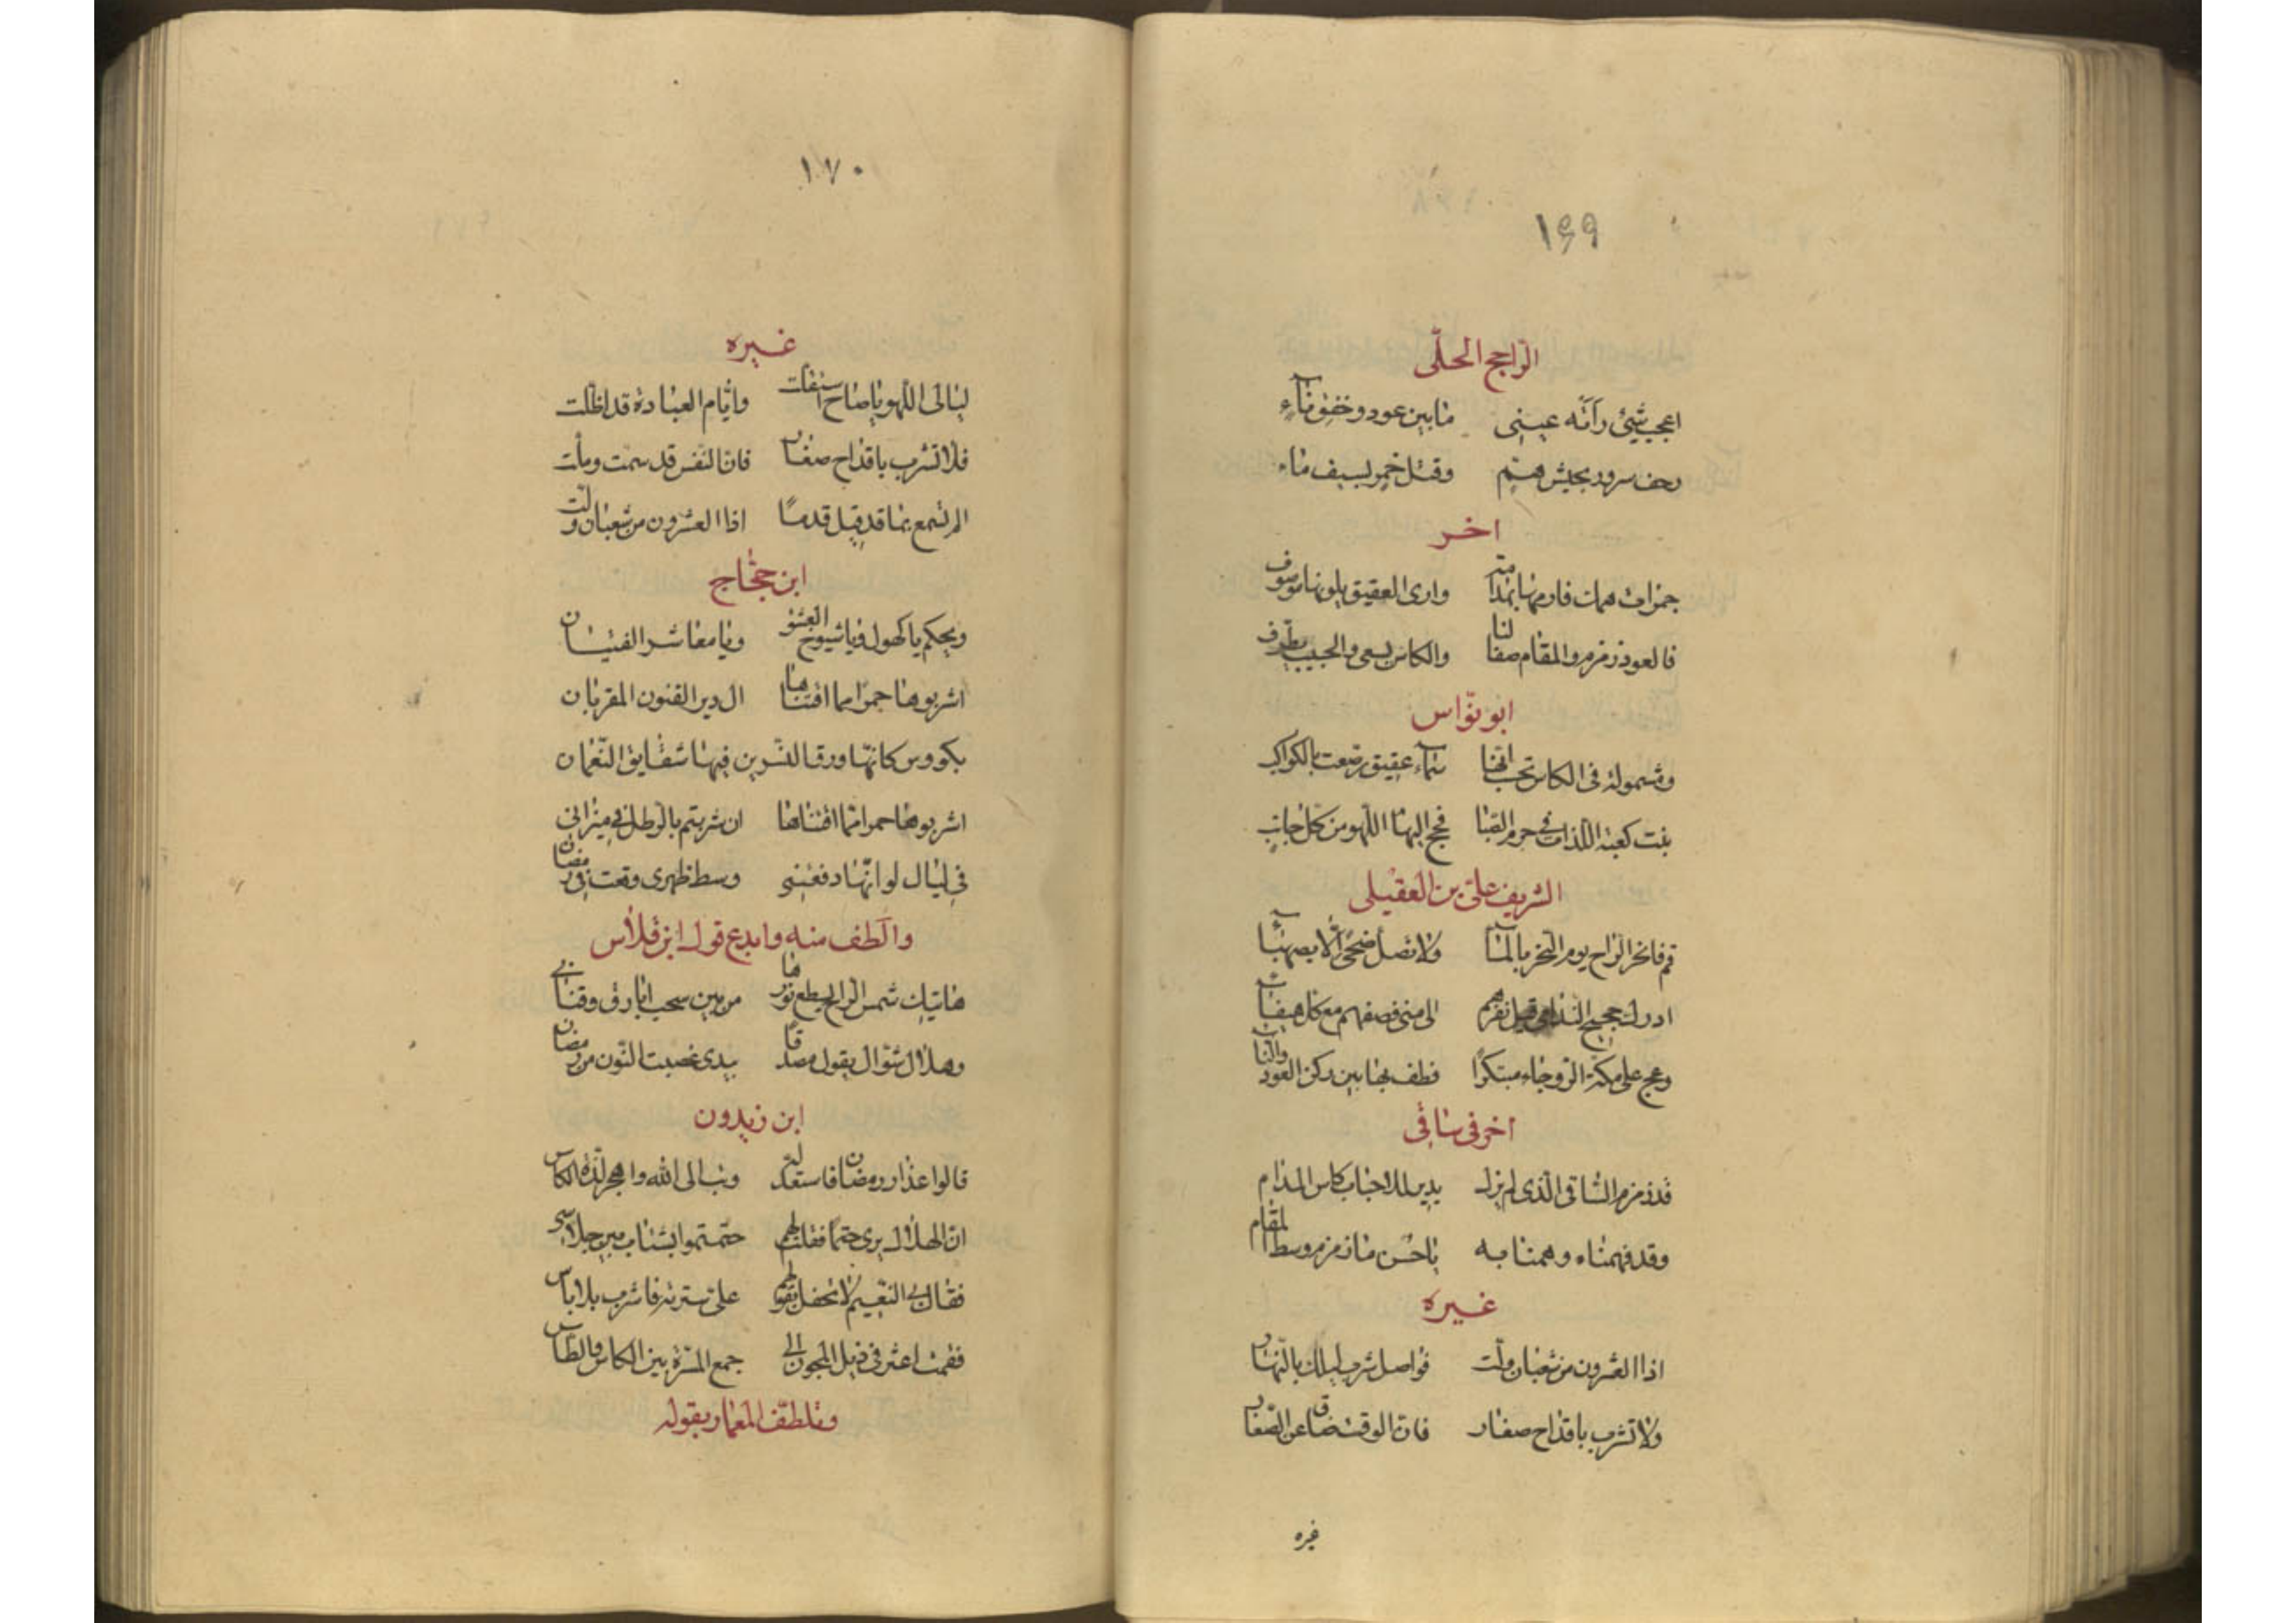 ١٦٩
الراجح الحلّى
اعجب شيئ رأته عينى مابين عود وخفق نآء
زحف سرور بجيش همّ وقتل خمر بسيف ماء
اخر
جمرات همك فارمها بمدامة وارى العقيق بلونها موصوف
فالعود زمزم والمقام صفا لنا والكاس يسعى والحبيب يطوف
ابو نوّاس
ومشمولة فى الكاس تحسب انها سمآء عقيق رصّعت بالكواكب
بنت كعبة اللذات فى حرم الصبا فحج اليها اللهو من كل جانب
الشريف على بن العقيلى
قم فانحر الراح يوم النحر بالمآء ولا تضل ضحًى الّا بصهبآء
ادرك حجيج الندامى قبل نفرهم الى منى قصفهم مع كل هيفآء
وعج على مكة الروحاء مبتكرًا فطف بها بين ركن العود والناء
اخر فى ساقى
قد زمزم الساقى الذى لم يزل يدير للاحباب كاس المدام
وقد فهمناه وهمنا به ياحسن ما زمزم وسط المقام
غيره
اذا العشرون من شعبان ولّت فواصل شرب ليلك بالنهار
ولا تشرب باقداح صغار فان الوقت ضاق عن الصغار
غيره
١٧٠
غيره
ليالى اللهو ياصاح استقلت وايّام العبادة قد اظلت
فلا تشرب باقداح صغار فان النفس قد سمت وملت
الم تسمع بما قد قيل قدمًا اذا العشرون من شعبان ولّت
ابن حجّاج
ويحكم ياكهول ويا شيوخ العشق ويا معاشر الفتيان
اشربوها حمرا مما اقتناها ال دير القنون القربان
بكووس كانّها ورق النسرين فيها شقايق النّعمان
اشربوها حمرا ممّا اقتناها ان شربتم بالرطل فى ميزانى
فى ليال لو انّها دفعتنى وسط ظهرى وقعت فى رمضان
والطف منه وابدع قول ابن قلاس
هاتيك شمس الراح يسطع نورها من بين سحب ابارق وقنانى
وهلال شوّال يقول مصدقًا بيدى غصبت النون من رمضان
ابن زيدون
قالوا غدا رمضان فاستعد له وتب الى الله واهجر لذة الكاس
ان الهلال يرى حتمًا فقلت لهم حتمتموا بشتات بين جلاسى
فقال لى النعيم لا تحفل بقولهم علىّ سترته فاشرب بلا باس
فقمت اعثر فى ذيل المجون الى جمع المسرة بين الكاس والطاس
وتلطّف المعمار بقوله